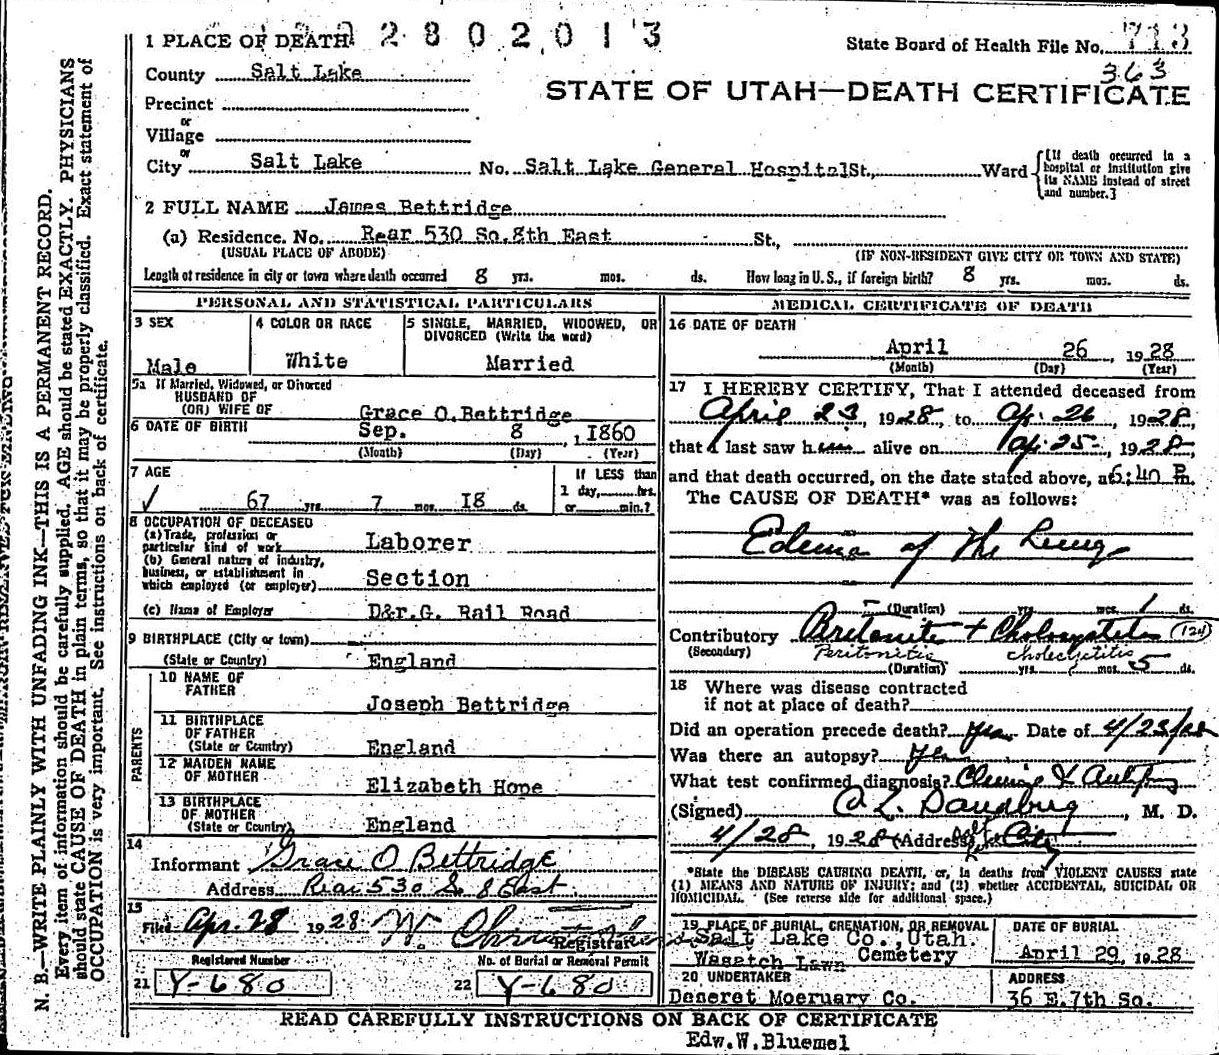 2 8 0 2 0 1 3
1 PLACE OF DEATH
State Board of Health File No. 713
363
County Salt Lake
STATE OF UTAH—DEATH CERTIFICATE
Precinct
or
Village
or
City Salt Lake No. Salt Lake General Hospital St., Ward
[If death occurred in a hospital or institution give its NAME instead of street and number.]
2 FULL NAME James Bettridge
(a) Residence. No. Rear 530 So. 8th East St.,
(USUAL PLACE OF ABODE) (IF NON-RESIDENT GIVE CITY OR TOWN AND STATE)
Length of residence in city or town where death occurred 8 yrs. mos. ds. How long in U.S., if foreign birth? 8 yrs. mos. ds.
PERSONAL AND STATISTICAL PARTICULARS
3 SEX
Male
4 COLOR OR RACE
White
5 SINGLE, MARRIED, WIDOWED, OR DIVORCED (Write the word)
Married
5a If Married, Widowed, or Divorced
HUSBAND OF
(OR) WIFE OF Grace O. Bettridge
6 DATE OF BIRTH Sep. 8, 1860
(Month) (Day) (Year)
7 AGE
67 yrs 7 mos. 18 ds.
If LESS than
1 day, hrs.
or min.?
8 OCCUPATION OF DECEASED
(a) Trade, profession or
particular kind of work Laborer
(b) General nature of industry,
business, or establishment in
which employed (or employer) Section
(c) Name of Employer D&r.G. Rail Road
9 BIRTHPLACE (City or town)
(State or Country) England
PARENTS
10 NAME OF FATHER
Joseph Bettridge
11 BIRTHPLACE OF FATHER
(State or Country) England
12 MAIDEN NAME OF MOTHER
Elizabeth Hope
13 BIRTHPLACE OF MOTHER
(State or Country) England
14
Informant Grace O Bettridge
Address Rear 530 So 8 East
15
Filed Apr. 28 1928 W.
Registrar
Registered Number No. of Burial or Removal Permit
21 Y-680 22 Y-680
MEDICAL CERTIFICATE OF DEATH
16 DATE OF DEATH
April 26, 1928
(Month) (Day) (Year)
17 I HEREBY CERTIFY, That I attended deceased from
April 23 1928, to Ap. 26 1928,
that I last saw him alive on Ap. 25 1928,
and that death occurred, on the date stated above, at 6:40 P m.
The CAUSE OF DEATH* was as follows:
Edema of the Lung
(Duration) yrs. mos. 1 ds.
Contributory Peritonitis + Cholecystitis (124)
(Secondary) Peritonitis cholecystitis
(Duration) yrs. mos. 5 ds.
18 Where was disease contracted
if not at place of death?
Did an operation precede death? Yes Date of 4/23/28
Was there an autopsy? Yes
What test confirmed diagnosis?
(Signed) M. D.
4/28, 1928 (Address) Salt Lake City
*State the DISEASE CAUSING DEATH, or, in deaths from VIOLENT CAUSES state
(1) MEANS AND NATURE OF INJURY; and (2) whether ACCIDENTAL, SUICIDAL OR
HOMICIDAL. (See reverse side for additional space.)
19 PLACE OF BURIAL, CREMATION, OR REMOVAL
Salt Lake Co., Utah.
Wasatch Lawn Cemetery
DATE OF BURIAL
April 29, 1928
20 UNDERTAKER
Deseret Moeruary Co.
ADDRESS
36 E. 7th So.
READ CAREFULLY INSTRUCTIONS ON BACK OF CERTIFICATE
Edw. W. Bluemel
N. B.—WRITE PLAINLY WITH UNFADING INK—THIS IS A PERMANENT RECORD.
Every item of information should be carefully supplied. AGE should be stated EXACTLY. PHYSICIANS
should state CAUSE OF DEATH in plain terms, so that it may be properly classified. Exact statement of
OCCUPATION is very important. See instructions on back of certificate.